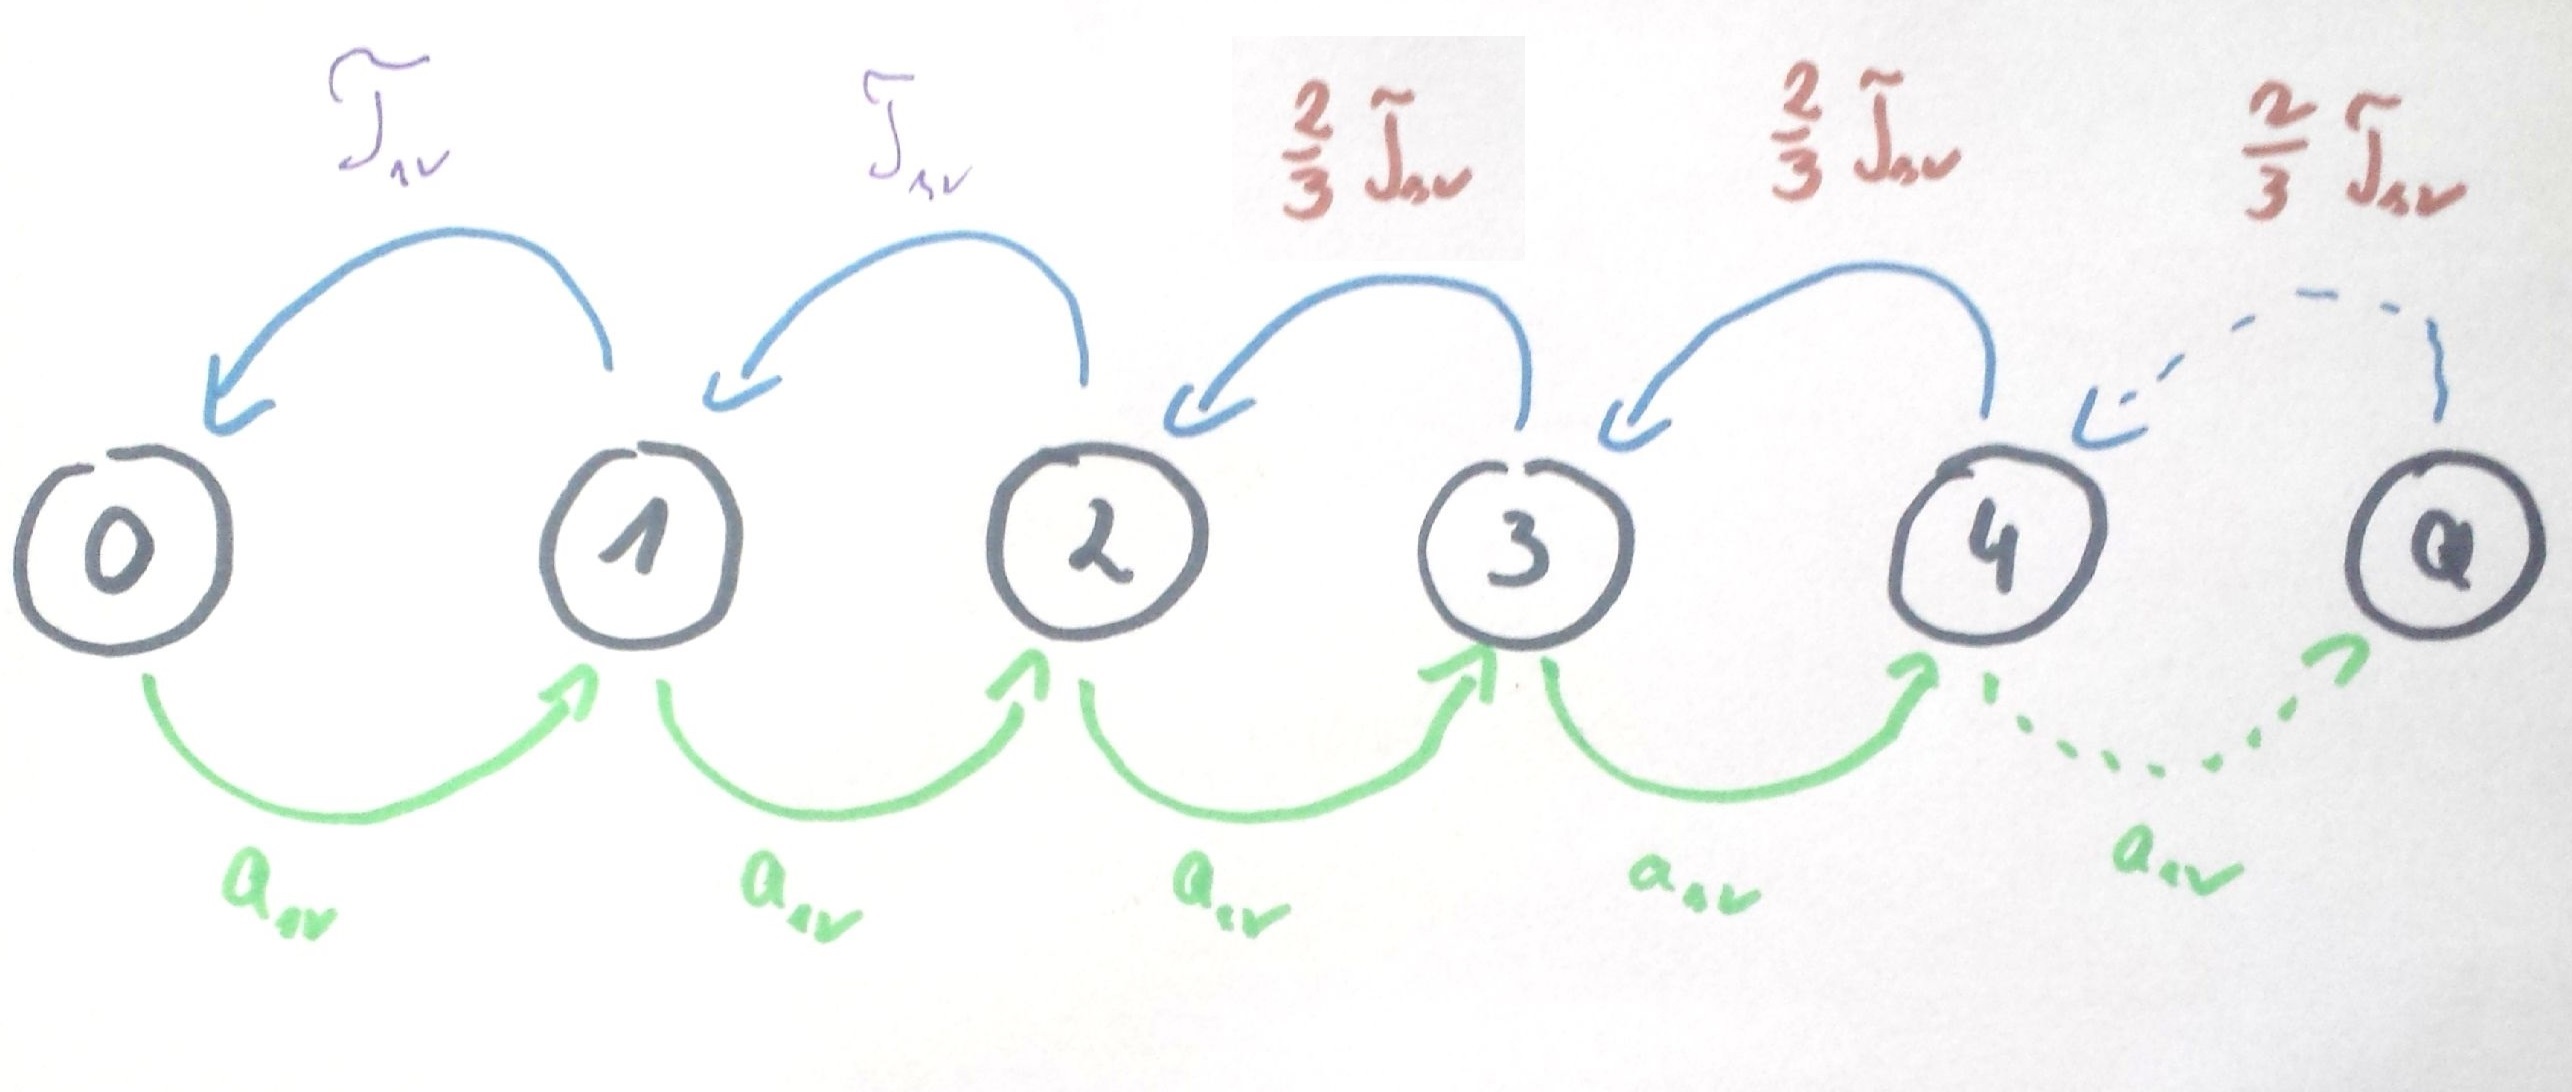 T̃₁ᵥ T̃₁ᵥ 2/3 T̃₁ᵥ 2/3 T̃₁ᵥ 2/3 T̃₁ᵥ
0 1 2 3 4 Q
a₁ᵥ a₁ᵥ a₁ᵥ a₁ᵥ a₁ᵥ